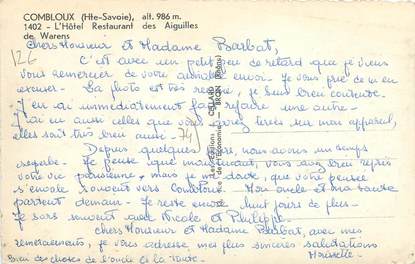 COMBLOUX (Hte-Savoie), alt. 986 m.
1402 - L'Hôtel Restaurant des Aiguilles
de Warens
126
Chers Monsieur et Madame Barbat,
C'est avec un petit peu de retard que je viens
vous remercier de votre aimable envoi. Je vous prie de m'en
excuser. La photo est très reçue, je suis bien contente.
J'en ai immédiatement fait refaire une autre.
J'ai eu aussi celles que vous avez tirées sur mon appareil,
elles sont très bien aussi.
74
Depuis quelques jours, nous avons un temps
Je pense que maintenant, vous avez bien repris
votre vie parisienne, mais je me doute, que votre pensée
s'envole souvent vers Combloux. Mon oncle et ma tante
partent demain. Je reste encore huit jours de plus.
Je sors souvent avec Nicole et Philippe.
Chers Monsieur et Madame Barbat, avec mes
remerciements, je vous adresse mes plus sincères salutations
Bien des choses de l'oncle et la tante.
Les Editions
BRON (Rhône)